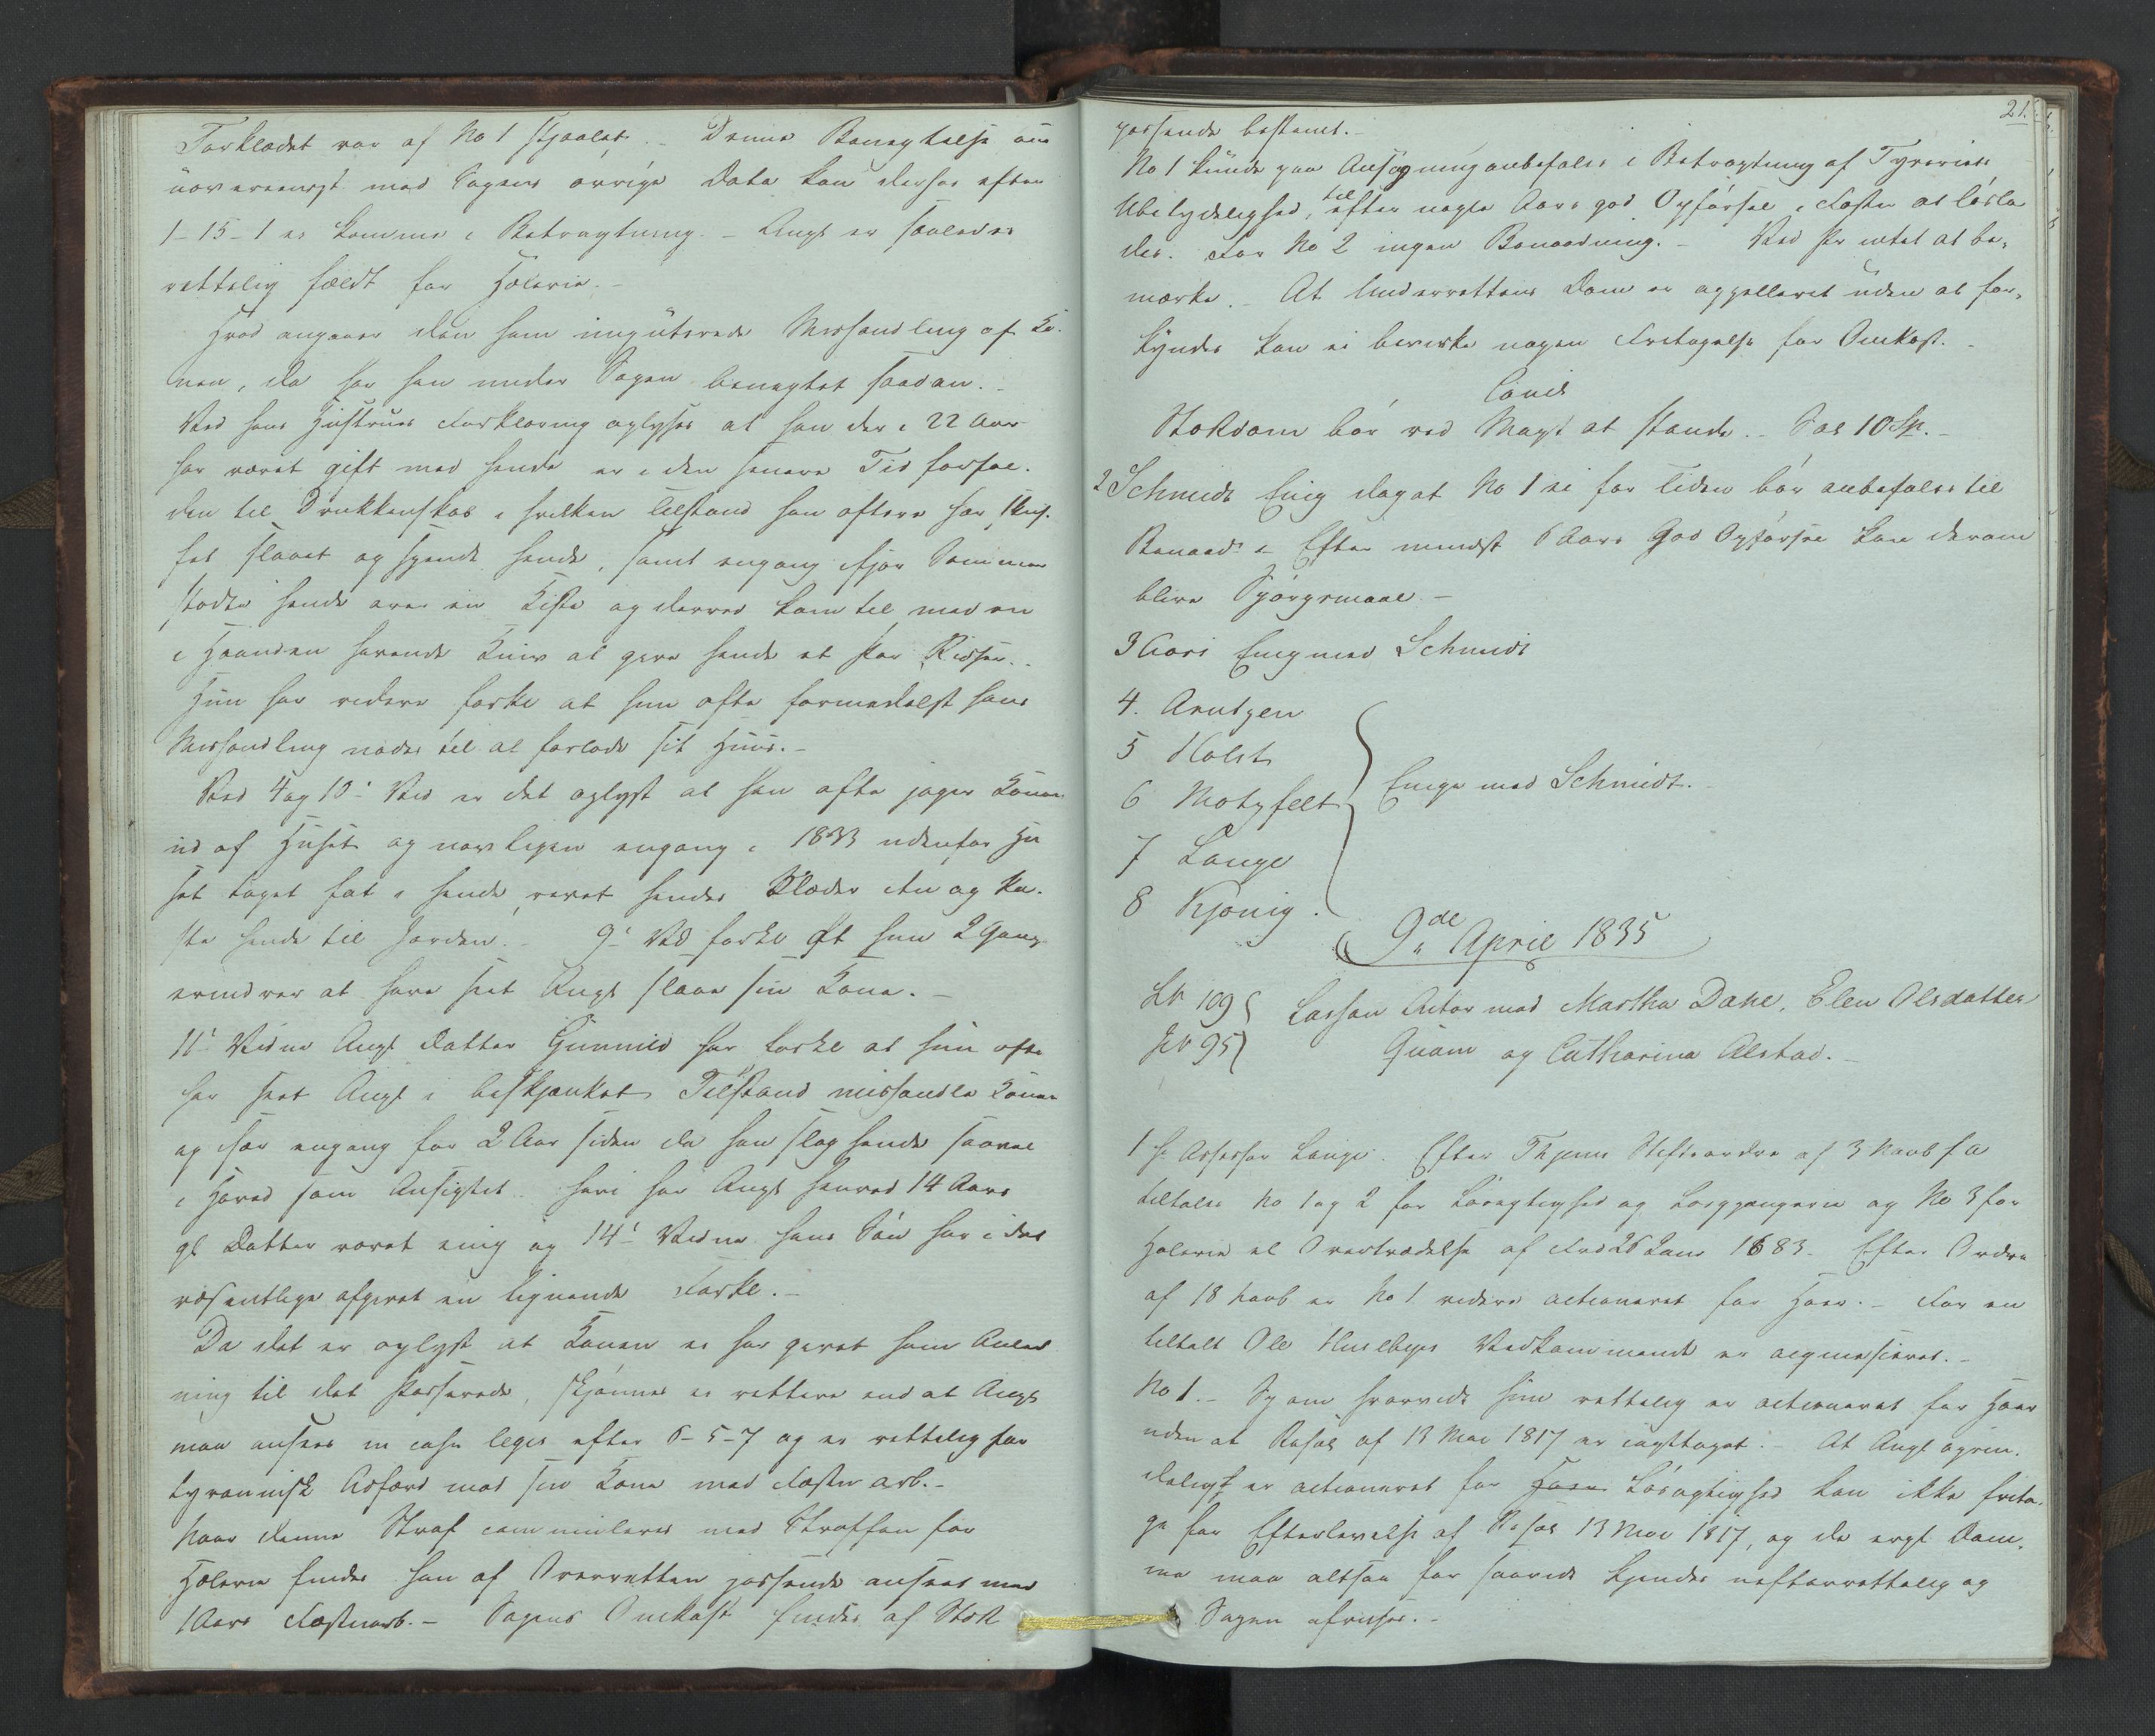 Forklædet var af No 1 stjaalet. Denne Benægtelse som
uoverensst. med Sagens øvrige Data kan derfor efter
1-15-1 ei komme i Betragtning. – Angl er saaledes
rettelig fældt for Hæleri. –
Hvad angaaer den ham imputerede Mishandling af Ko-
nen, da har han under Sagen benægtet saadan. –
Ved hans Hustrues Forklaring oplyses at han der i 22 Aar
har været gift med hende er i den senere Tid forfal-
den til Drukkenskab i hvilken Tilstand han oftere har
slaaet og spændt hende, samt engang ifjor Sommer
stødte hende over en Kiste og derved kom til med en
i Haanden havende Kniv at give hende et Par Ridser. –
Hun har videre forkl at hun ofte formedelst hans
Mishandling nødes til at forlade sit Huus. –
Ved 4 og 10' Vid er det oplyst at han ofte jager Konen
ud af Huset og navnligen engang i 1833 udenfor Hu
set taget fat i hende, revet hendes Klæder itu og ka-
ste hende til Jorden. – 9' Vid forkl at hun 2 Gange
erindrer at have seet Angl slaae sin Kone. –
11' Vidne Angl Datter Gunnild har forkl at hun ofte
har seet Angl i beskjænket Tilstand mishandle Konen
og især engang for 2 Aar siden da han slog hende saavel
i Hoved som Ansigtet. heri har Angl henved 14 Aars
gl Datter været enig og 14' Vidne hans Søn har i det
væsentlige afgivet en lignende Forkl. –
Da det er oplyst at Konen ei har givet ham Anled
ning til det Passerede, skjønnes ei rettere end at Angl
maa ansees in casu legis efter 6-5-7 og er rettelig for
tyrannisk Adfærd mod sin Kone med Fæstn arb. –
Naar denne Straf cummuleres med Straffen for
Hæleri findes han af Overretten passende anseet med
1 Aars Fæstnarb. – Sagens Omkost findes af StOR
21.
passende bestemt. –
No 1 kunde paa Ansøgning anbefales i Betragtning af Tyveriets
Ubetydelighed, til efter nogle Aars god Opførsel i Fæstn at løsla
des. For No 2 ingen Benaadning. – Ved Pr intet at be-
mærke. – At Underrettens Dom er appelleret uden at for-
kyndes kan ei bevirke nogen Fritagelse for Omkost. –
Concl
StORdom bør ved Magt at stande. – Sal 10 Sp. –
2 Schmidt Enig dog at No 1 ei for tiden bør anbefales til
Benaad: – Efter mindst 6 Aars God Opførsel kan derom
blive Spørgsmaal –
3 Enig med Schmidt
4. Arntzen
5 Holst
6 Motzfelt
7 Lange
8 Kjønig.
Enige med Schmidt. –
9de April 1835
L№ 109
J№ 95
Lasson Actor mod Martha Dahl, Elen Olsdatter
Quam og Cathrina Alstad. –
1 Hr Assessor Lange. Efter Thjems Stiftsordre af 3 Novb f a
tiltales No 1 og 2 for Løsagtighed og Løsgjængeri og No 3 for
Hæleri el Overtrædelse af Frd 26 Janr 1683. Efter Ordre
af 18 Novb er No 1 videre actioneret for Hoer. – For en
tiltalt Ole Vedkommende er acqviesceret. –
No 1. – Spm hvorvidt hun rettelig er actioneret for Hoer
uden at Resol af 13 Mai 1817 er iagttaget. – At Angl oprin-
deligst er actioneret for Hoer Løsagtighed kan ikke frita-
ge for Efterlevelse af Resol 13 Mai 1817, og de ergl Dom-
me maa altsaa for saavidt kjendes uefterrettelig og
Sagen afvises. –